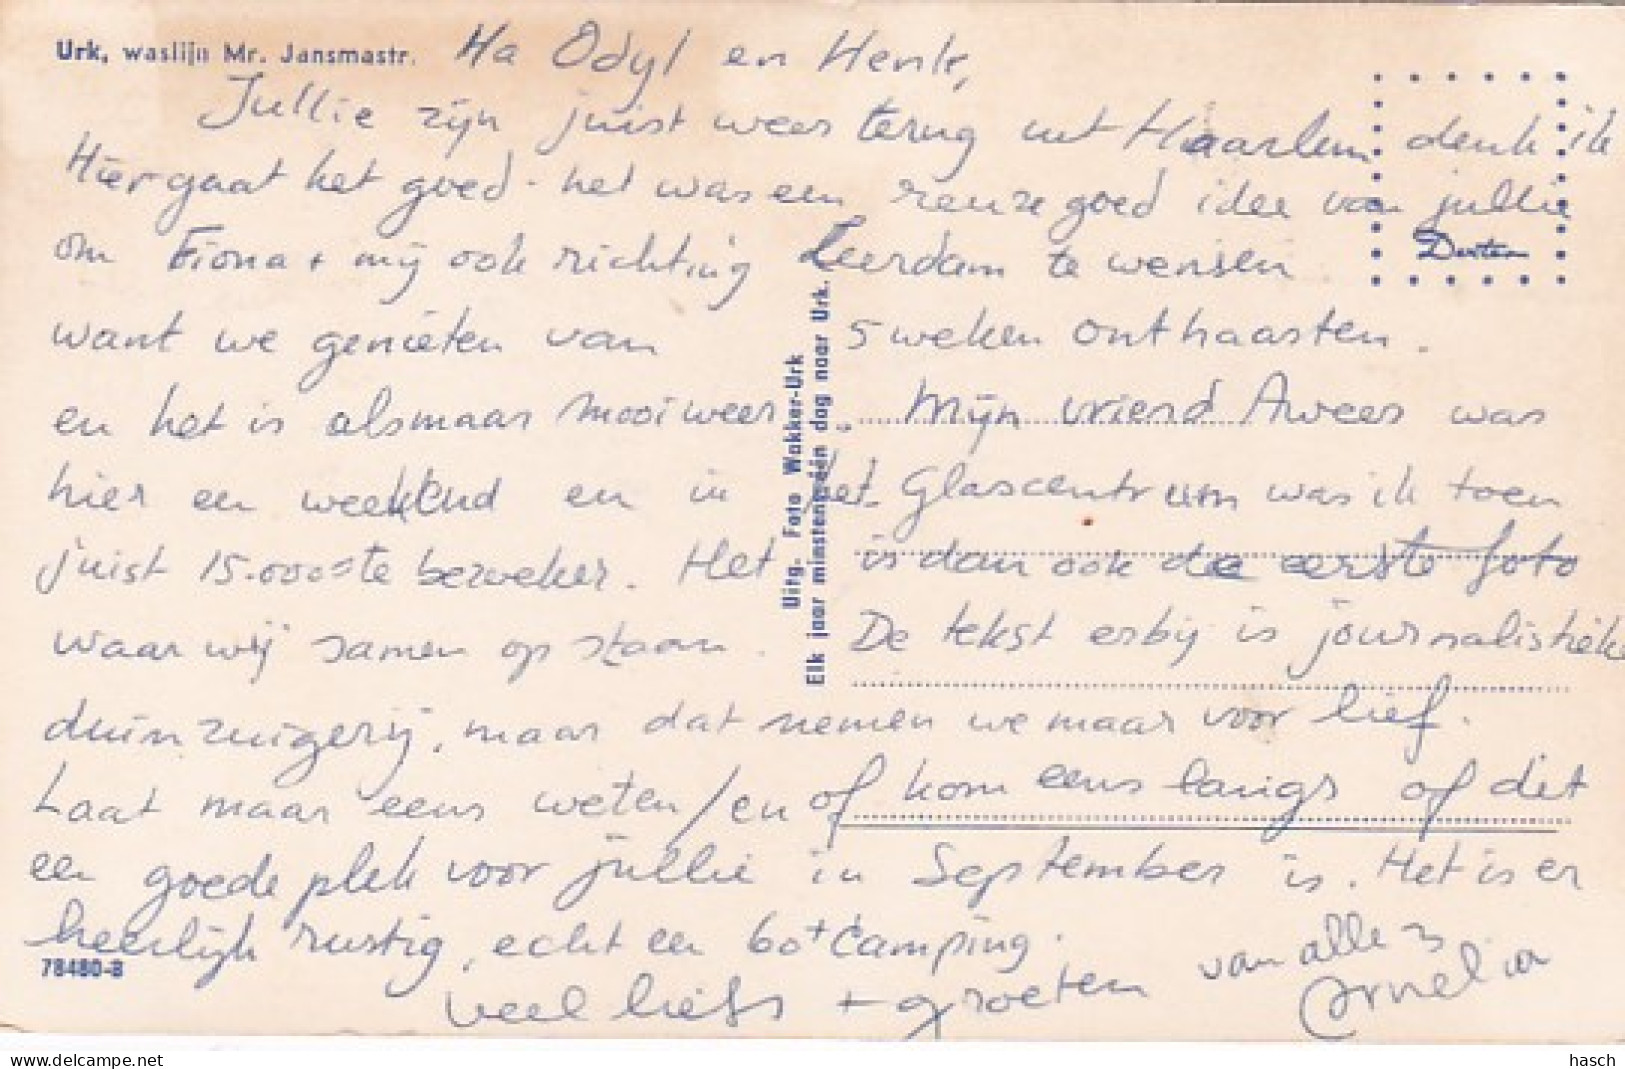 Urk, waslijn Mr. Jansmastr. Ha Odyl en Henk,
Jullie zijn juist weer terug uit Haarlem denk ik
Hier gaat het goed - het was een reuze goed idee van jullie
om Fiona + mij ook richting Leerdam te wensen
want we genieten van 5 weken onthaasten.
en het is alsmaar mooi weer. Mijn vriend was
hier een weekend en in het Glascentrum was ik toen
juist 15.000ste bezoeker. Het is dan ook de eerste foto
waar wij samen op staan. De tekst erbij is journalistieke
duimzuigerij, maar dat nemen we maar voor lief.
Laat maar eens weten / en of kom eens langs of dit
een goede plek voor jullie in September is. Het is er
heerlijk rustig, echt een 60+ camping.
veel liefs + groeten van allen
Cornelia
Uitg. Foto Wakker-Urk
Elk jaar minstens één dag naar Urk.
78480-B
hasch
https://www.delcampe.net